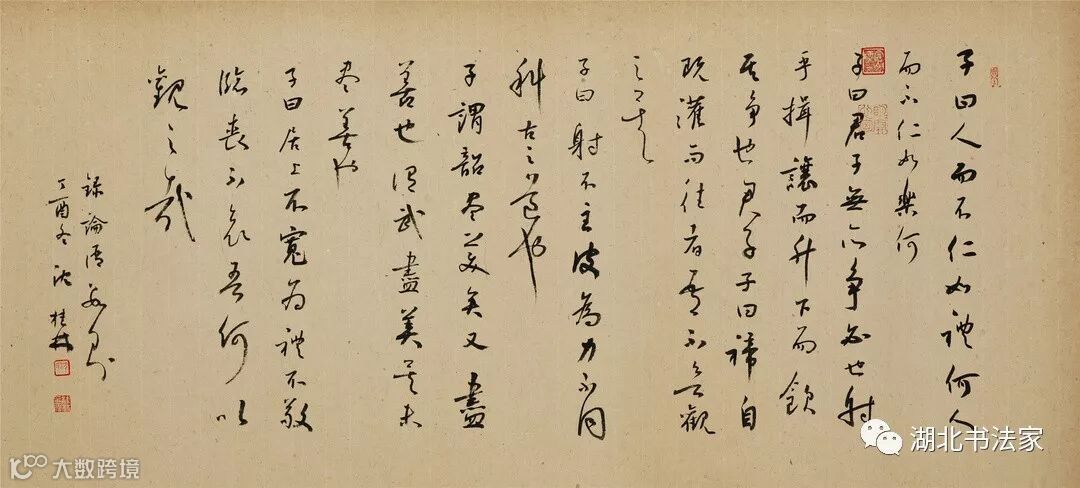 子曰人而不仁如禮何人
而不仁如樂何
子曰君子無所争必也射
乎揖讓而升下而飲
其争也君子子曰禘自
既灌而往者吾不欲觀
之矣
子曰射不主皮為力不同
科古之道也
子謂韶尽美矣又盡
善也謂武盡美矣未
尽善也
子曰居上不寬為禮不敬
臨喪不哀吾何以
觀之哉
録論語則
丁酉冬沈桂林
湖北书法家
大数跨境